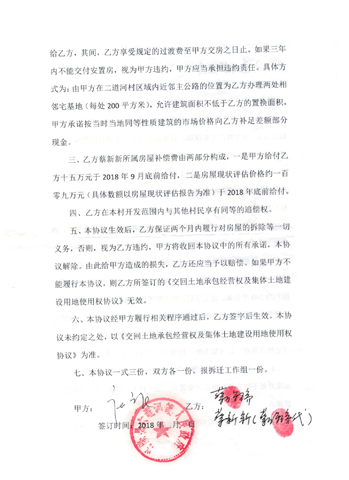 给乙方，其间，乙方享受规定的过渡费至甲方交房之日止。如果三年
内不能交付安置房，视为甲方违约，甲方应当承担违约责任。具体方
式为：由甲方在二道河村区域内近邻主公路的位置为乙方办理两处相
邻宅基地（每处 200 平方米），允许建筑面积不低于乙方的置换面积，
甲方承诺按当时当地同等性质建筑的市场价格向乙方补足差额部分
现金。
三、乙方蔡新新所属房屋补偿费由两部分构成，一是甲方给付乙
方十五万元于 2018 年 9 月底前给付，二是房屋现状评估价格约一百
零九万元（具体数额以房屋现状评估报告为准）于 2018 年底前给付。
四、乙方在本村开发范围内与其他村民享有同等的追偿权。
五、本协议生效后，乙方保证两个月内履行对房屋的拆除等一切
义务，否则，视为乙方违约，甲方将收回本协议中的所有承诺，本协
议解除。由此给甲方造成的损失，乙方还应当予以赔偿。如果甲方不
能履行本协议，则乙方所签订的《交回土地承包经营权及集体土地建
设用地使用权协议》无效。
六、本协议经甲方履行相关程序通过后，乙方签字后生效。本协
议未约定之处，以《交回土地承包经营权及集体土地建设用地使用权
协议》为准。
七、本协议一式三份，双方各一份，报拆迁工作组一份。
甲方：
乙方：
蔡新新
签订时间：2018 年 月 日